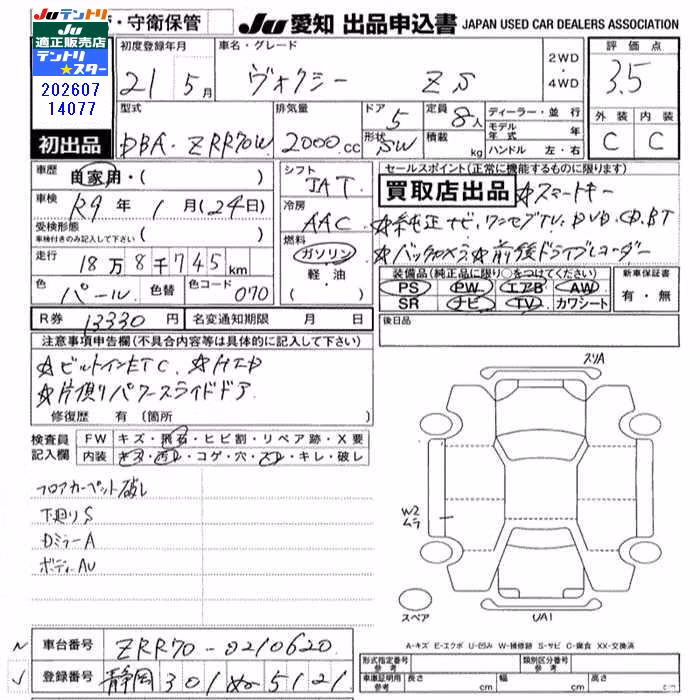 Juテントリ
適正販売店
テントリ
★スター
202607
14077
・守衛保管
JU 愛知 出品申込書 JAPAN USED CAR DEALERS ASSOCIATION
初出品
初度登録年月 車名・グレード 2WD・4WD 評価点
21 5月 ヴォクシー ZS 3.5
型式 排気量 ドア 定員 ディーラー・並行 外装 内装
DBA-ZRR70W 2000cc 5 8人 モデル年式 年 C C
形状 SW 積載 kg ハンドル 左・右
車歴 自家用・( )
車検 R9年1月(24日)
受検形態 車検付きのみ記入して下さい ( )
走行 18万8千745km
色 パール 色替 色コード 070
シフト IAT
冷房 AAC
燃料 ガソリン・軽油・( )
セールスポイント(正常に機能するものに限ります)
買取店出品 ☆スマートキー
☆純正ナビ、ワンセグTV、DVD、CD、BT
☆バックカメラ☆前後ドライブレコーダー
装備品(純正品に限り○をつけてください) 新車保証書
PS PW エアB AW 有・無
SR ナビ TV カワシート
R券 13330円 名変通知期限 月 日 後日品
注意事項申告欄(不具合内容等は具体的に記入して下さい)
☆ビルトインETC、☆HID
☆片側パワースライドドア
修復歴 有(箇所 )
検査員記入欄 FW キズ・飛石・ヒビ割・リペア跡・X要
内装 キズ・汚レ・コゲ・穴・スレ・キレ・破レ
フロアカーペット破レ
下廻りS
DミラーA
ボディーAU
スリA
W2
ムラ
スペア
UA1
A-キズ E-エクボ U-凹み W-補修跡 S-サビ C-腐食 XX-交換済
車台番号 ZRR70-0210620
登録番号 静岡 301 ぬ 5121
形式指定番号 参考 類別区分番号 参考
車庫証明用 参考 長さ cm 幅 cm 高さ cm